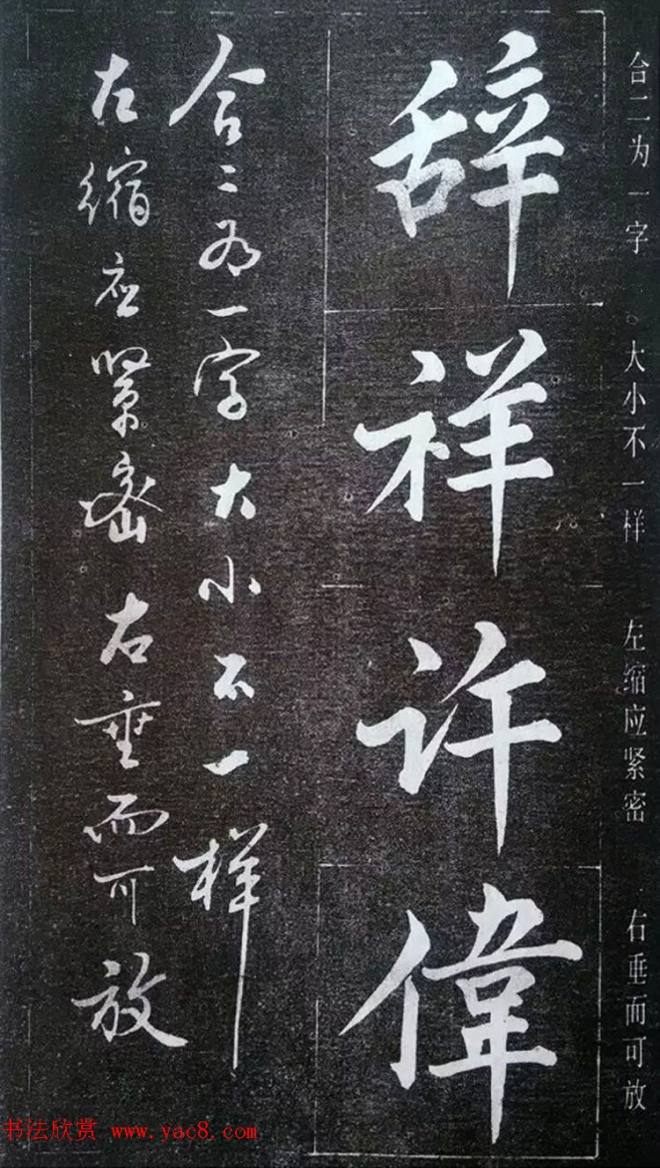 合二为一字 大小不一样 左缩应紧密 右垂而可放
辞祥许偉
合二为一字大小不一样
左缩应紧密右垂而可放
书法欣赏 www.yac8.com